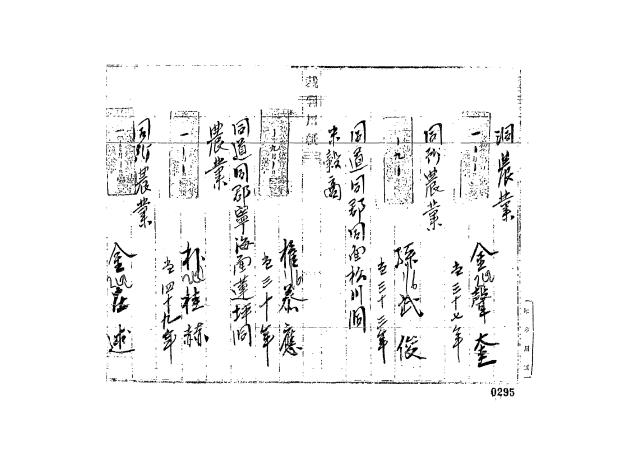 洞農業
金聲奎
当三十七年
同所農業
孫武俊
当三十三年
同道同郡同面松川洞
米穀商
権泰應
当三十年
同道同郡寧海面蓮坪洞
農業
朴桂赫
当四十九年
同所農業
金 述
0295